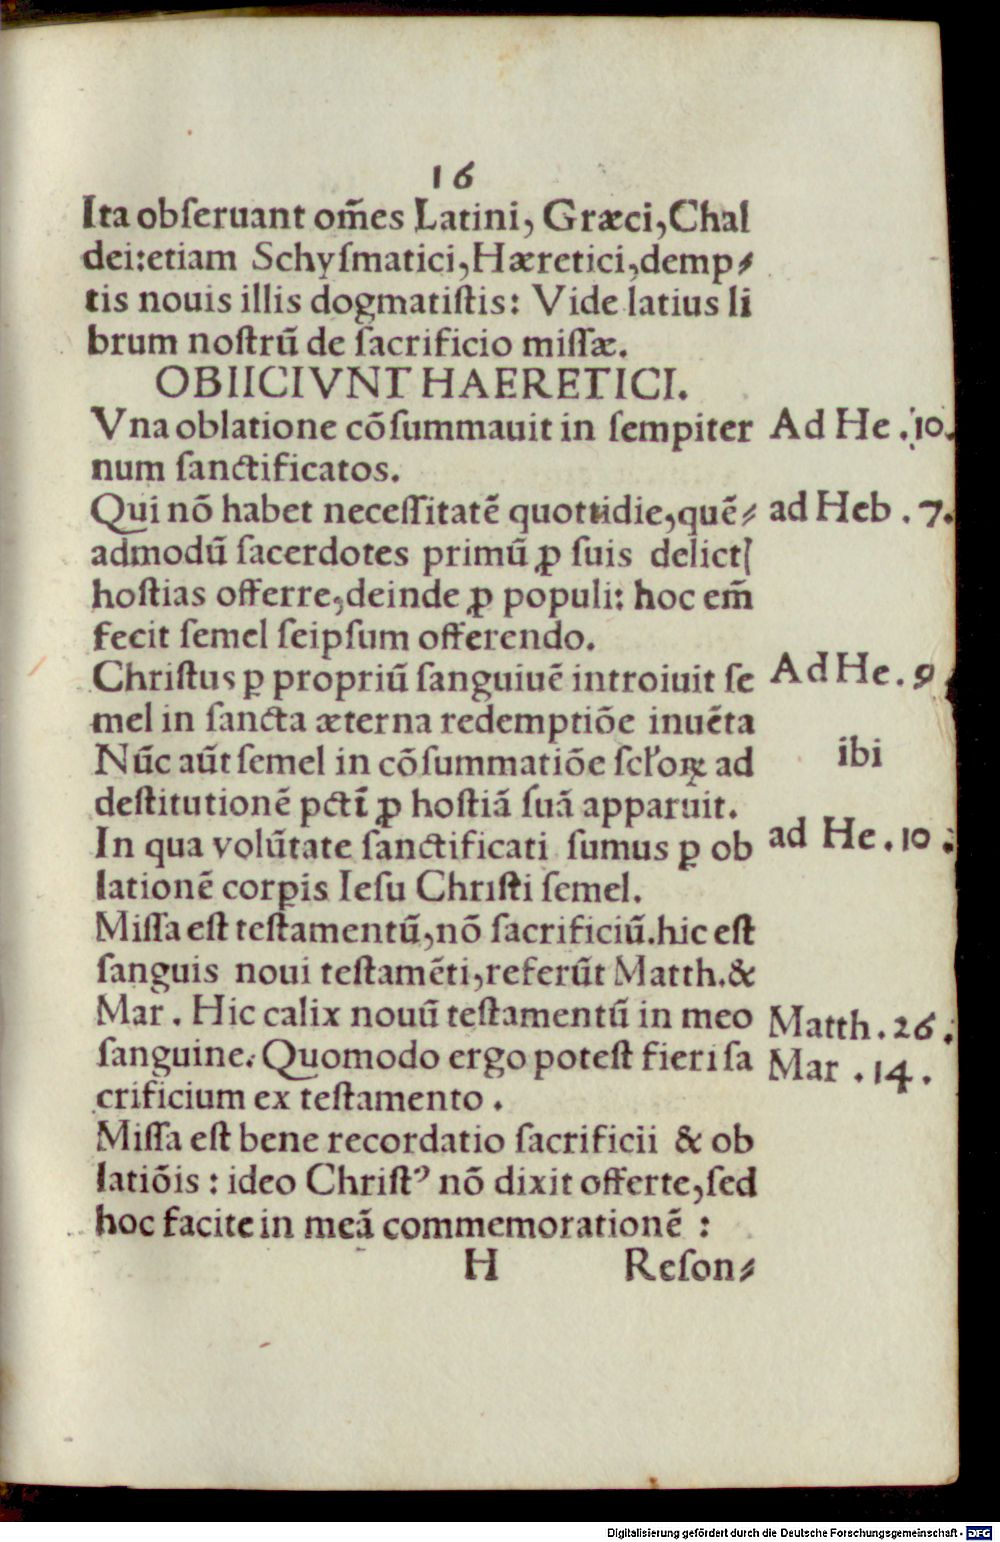 16
Ita obſeruant om̃es Latini, Græci, Chal
dei: etiam Schyſmatici, Hæretici, demp⸗
tis nouis illis dogmatiſtis: Vide latius li
brum noſtrũ de ſacrificio miſſæ.
OBIICIVNT HAERETICI.
Vna oblatione cõſummauit in ſempiter Ad He .10.
num ſanctificatos.
Qui nõ habet neceſſitatẽ quottidie, quẽ⸗ ad Heb . 7.
admodũ ſacerdotes primũ ꝓ ſuis delictꝭ
hoſtias offerre, deinde ꝓ populi: hoc em̃
fecit ſemel ſeipſum offerendo.
Chriſtus ꝑ propriũ ſanguiuẽ introiuit ſe Ad He . 9
mel in ſancta æterna redemptiõe inuẽta
Nũc aũt ſemel in cõſummatiõe ſcl̃oꝝ ad ibi
deſtitutionẽ pctĩ ꝓ hoſtiã ſuã apparuit.
In qua volũtate ſanctificati ſumus ꝑ ob ad He . 10 .
lationẽ corꝑis Ieſu Chriſti ſemel.
Miſſa eſt teſtamentũ, nõ ſacrificiũ. hic eſt
ſanguis noui teſtamẽti, referũt Matth. &
Mar . Hic calix nouũ teſtamentũ in meo Matth . 26 .
ſanguine: Quomodo ergo poteſt fieri ſa Mar . 14 .
crificium ex teſtamento .
Miſſa eſt bene recordatio ſacrificii & ob
latiõis : ideo Chriſtꝰ nõ dixit offerte, ſed
hoc facite in meã commemorationẽ :
H Reſon⸗
Digitalisierung gefördert durch die Deutsche Forschungsgemeinschaft - DFG